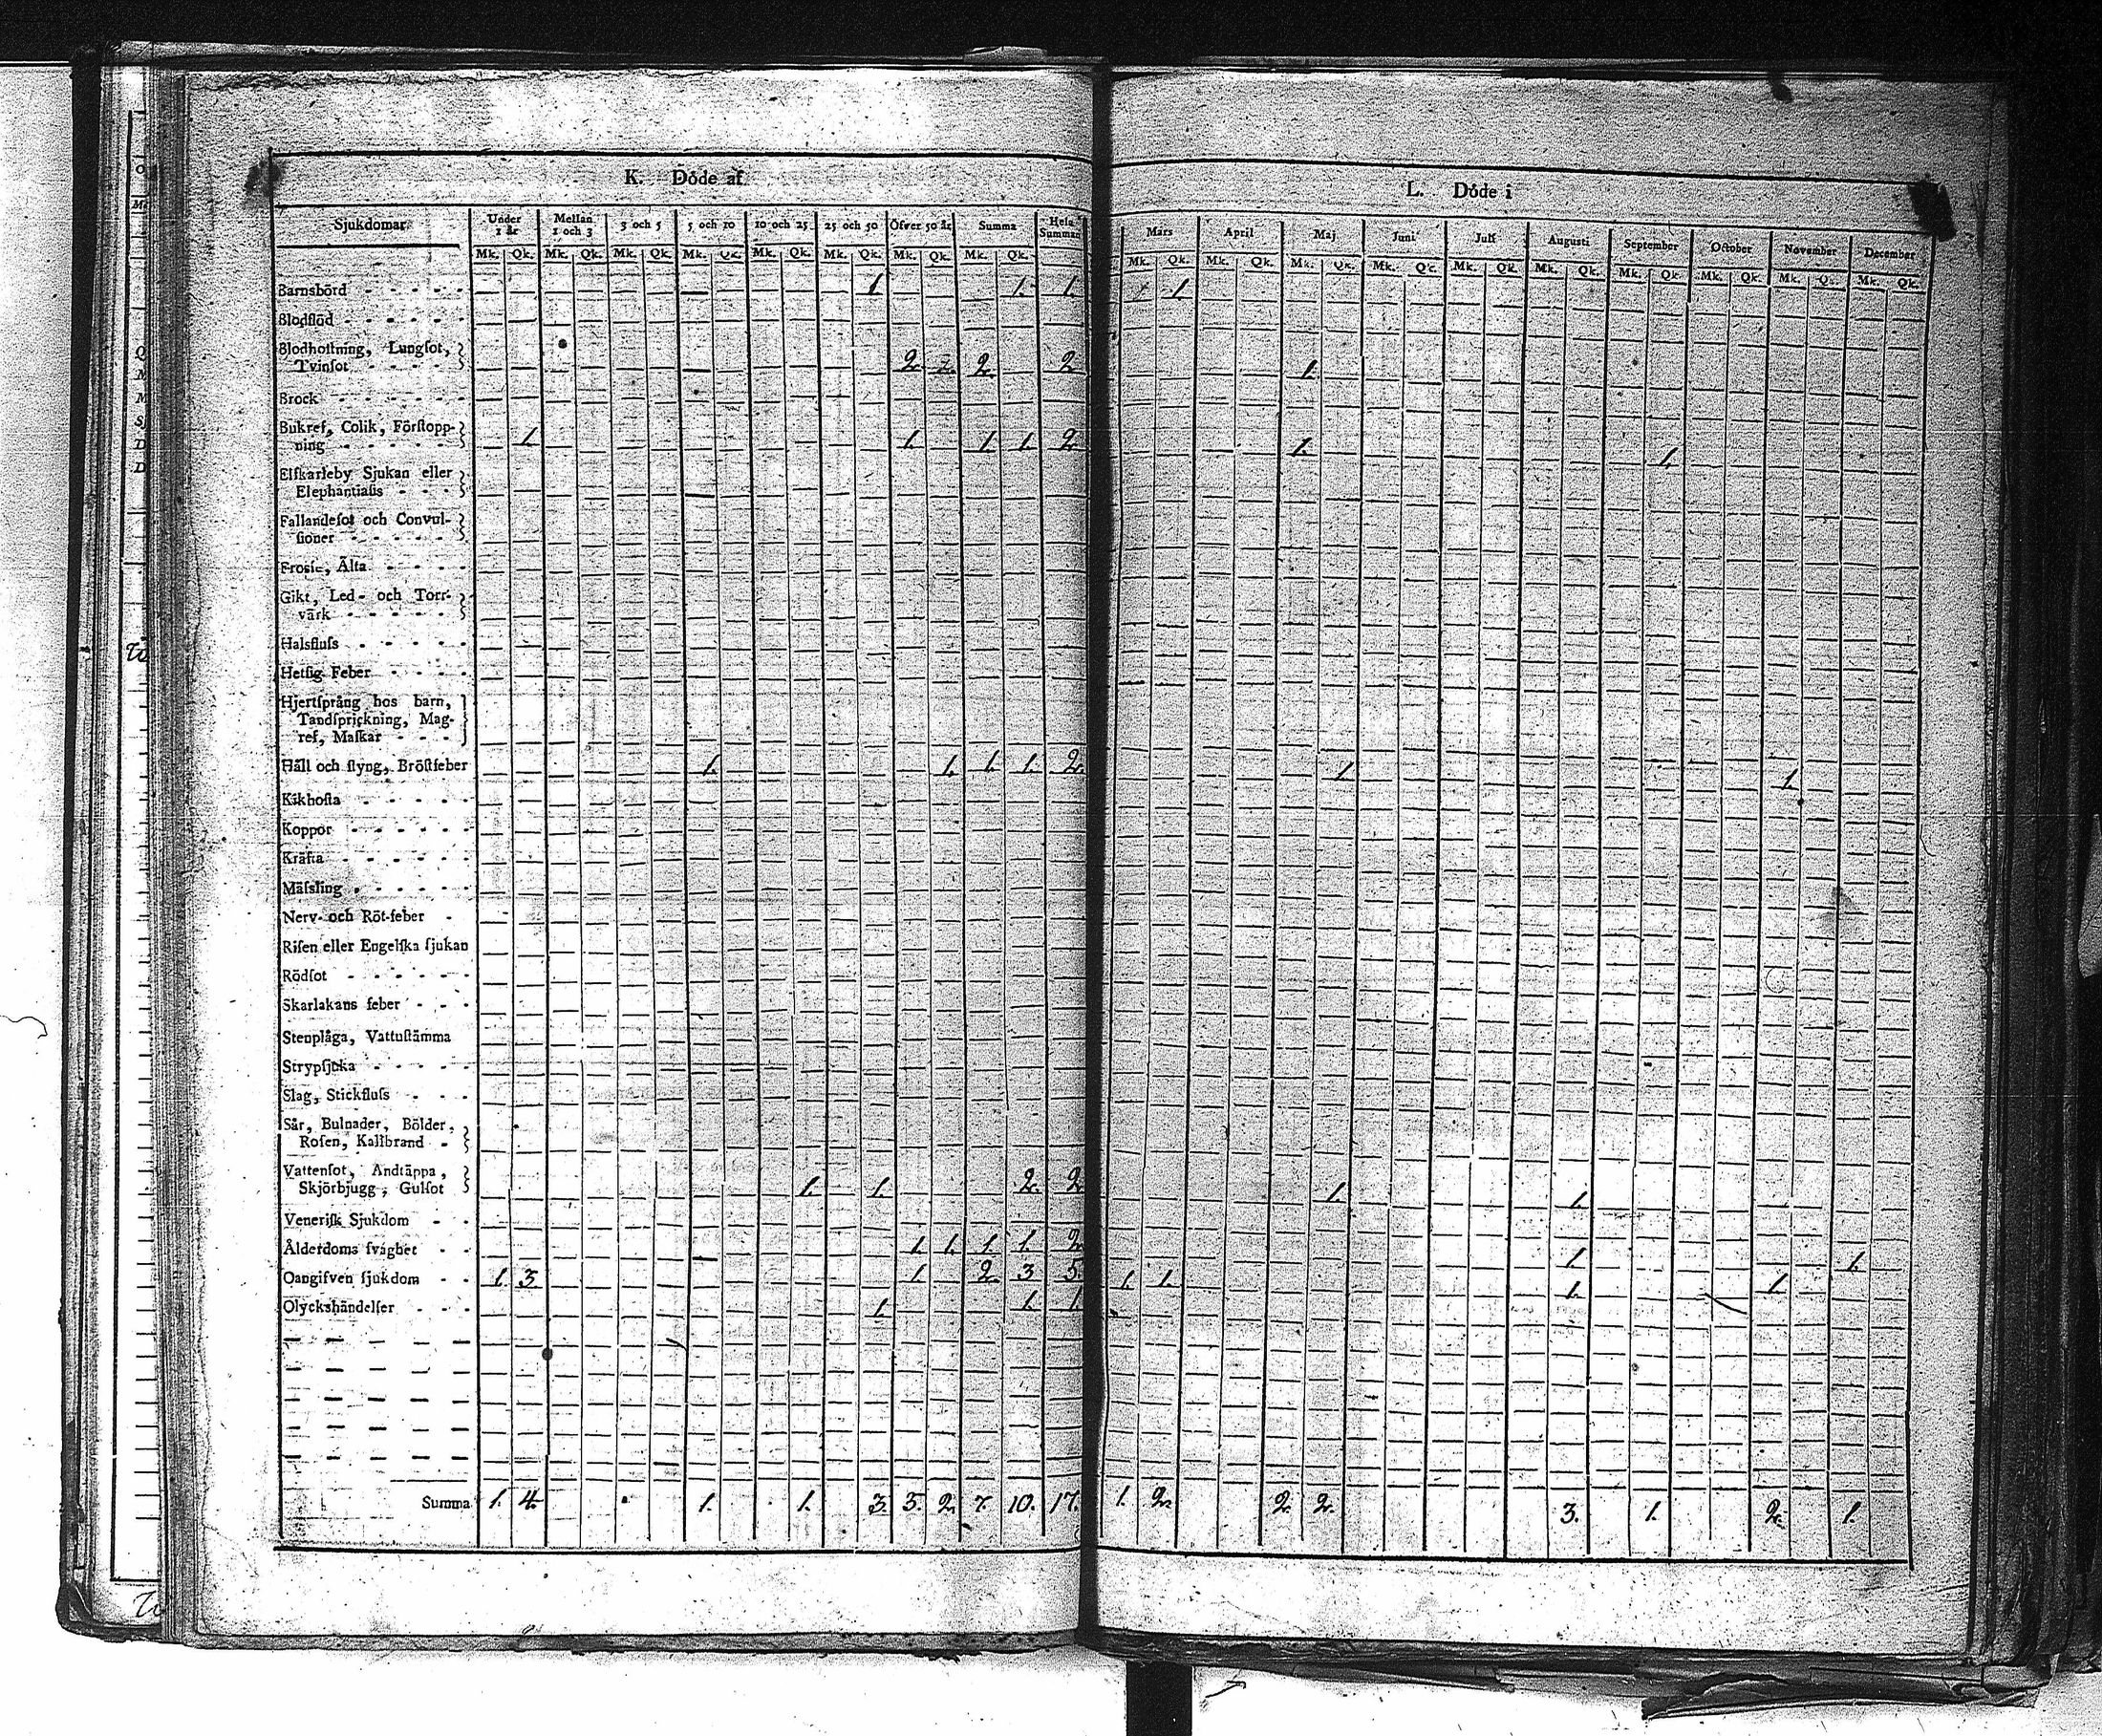 K. Döde af
Sjukdomar Under 1 år Mellan 1 och 3 3 och 5 5 och 10 10 och 25 25 och 50 Öfver 50 år Summa Hela Summa
Mk. Qk. Mk. Qk. Mk. Qk. Mk. Qk. Mk. Qk. Mk. Qk. Mk. Qk. Mk. Qk.
Barnsbörd 1 1. 1.
Blodflöd
Blodhostning, Lungsot,
Tvinsot 2 2 2
Brock
Bukref, Colik, Förstopp-
ning 1 1. 1. 1. 2
Elfkarleby Sjukan eller
Elephantiasis
Fallandesot och Convul-
sioner
Frossa, Älta
Gikt, Led- och Torr-
värk
Halsfluss
Hetsig Feber
Hjertsprång hos barn,
Tandsprickning, Mag-
ref, Maskar
Håll och styng, Bröstfeber 1. 1. 1. 1. 2.
Kikhosta
Koppor
Kräfta
Mässling
Nerv- och Röt-feber
Risen eller Engelska sjukan
Rödsot
Skarlakans feber
Stenplåga, Vattustämma
Strypsjuka
Slag, Stickfluss
Sår, Bulnader, Bölder,
Rosen, Kallbrand
Vattensot, Andtäppa,
Skjörbjugg, Gulsot 1. 1. 2. 2
Venerisk Sjukdom
Ålderdoms svaghet 1. 1. 1. 1. 2
Oangifven sjukdom 1. 3 1. 2 3 5.
Olyckshändelser 1. 1. 1.
Summa 1. 4. 1. 1. 3. 5. 2. 7. 10. 17.
L. Döde i
Mars April Maj Juni Juli Augusti September October November December
Mk. Qk. Mk. Qk. Mk. Qk. Mk. Qk. Mk. Qk. Mk. Qk. Mk. Qk. Mk. Qk. Mk. Qk. Mk. Qk.
1.
1.
1. 1.
1 1.
1. 1.
1. 1.
1. 1. 1. 1
1. 2. 2. 2. 3. 1. 2. 1.